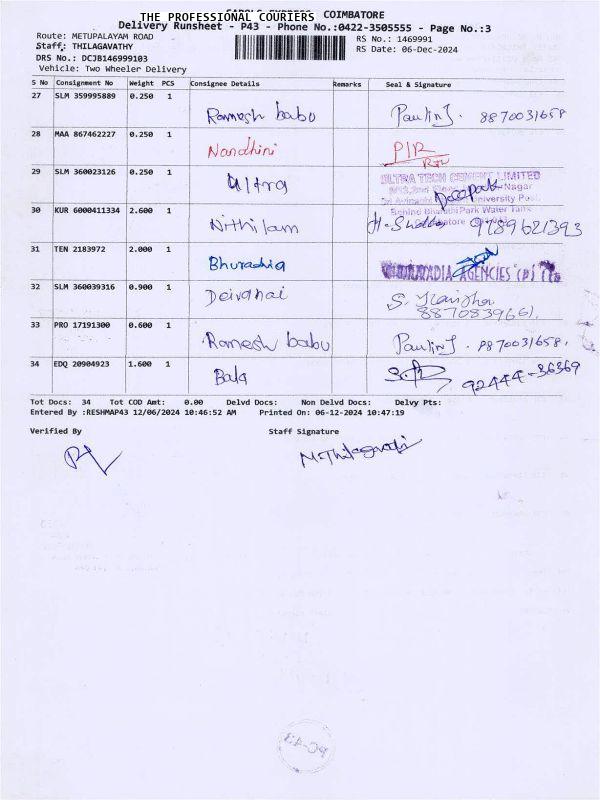 THE PROFESSIONAL COURIERS COIMBATORE
Delivery Runsheet - P43 - Phone No.:0422-3505555 - Page No.:3
Route: METUPALAYAM ROAD
RS No.: 1469991
Staff: THILAGAVATHY
RS Date: 06-Dec-2024
DRS No.: DCJB146999103
Vehicle: Two Wheeler Delivery
S No Consignment No Weight PCS Consignee Details Remarks Seal & Signature
27 SLM 359995889 0.250 1 Ramesh babu Paulin J. 8870031658
28 MAA 867462227 0.250 1 Nandhini
29 SLM 360023126 0.250 1 Ultra ULTRA TECH CEMENT LIMITED
Nagar
University Post,
Behind Bharathi Park Water Tank
30 KUR 6000411334 2.600 1 Nithilam 9789621393
31 TEN 2183972 2.000 1 Bhuradia AGENCIES (P)
32 SLM 360039316 0.900 1 Deivanai 8870839661
33 PRO 17191300 0.600 1 Ramesh babu Paulin J. 8870031658.
34 EDQ 20904923 1.600 1 Bala 92444-36369
Tot Docs: 34 Tot COD Amt: 0.00 Delvd Docs: Non Delvd Docs: Delvy Pts:
Entered By :RESHMAP43 12/06/2024 10:46:52 AM Printed On: 06-12-2024 10:47:19
Verified By Staff Signature
M.Thilagavathi